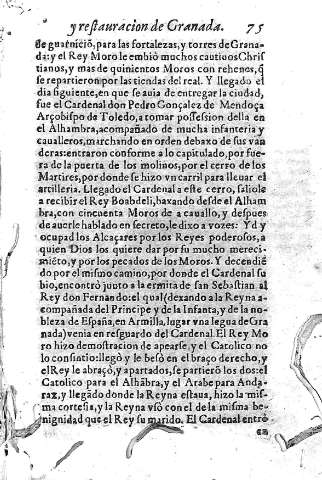 y restauracion de Granada. 75
de guarnició, para las fortalezas, y torres de Grana-
da: y el Rey Moro le embiò muchos cautiuos Chris-
tianos, y mas de quinientos Moros con rehenes, q̃
se repartieron por las tiendas del real. Y llegado el
dia siguiente, en que se auia de entregar la ciudad,
fue el Cardenal don Pedro Gonçalez de Mendoça
Arçobispo de Toledo, a tomar possession della en
el Alhambra, acompañado de mucha infanteria y
caualleros, marchando en orden debaxo de sus van
deras: entraron conforme a lo capitulado, por fue-
ra de la puerta de los molinos, por el cerro de los
Martires, por donde se hizo vn carril para lleuar el
artilleria. Llegado el Cardenal a este cerro, saliole
a recibir el Rey Boabdeli, baxando desde el Alham
bra, con cincuenta Moros de a cauallo, y despues
de auerle hablado en secreto, le dixo a vozes: Yd y
ocupad los Alcaçares por los Reyes poderosos, a
quien Dios los quiere dar por su mucho mereci-
miéto, y por los pecados de los Moros. Y decendié
do por el mismo camino, por donde el Cardenal su
bio, encontrò junto a la ermita de san Sebastian al
Rey don Fernando: el qual (dexando a la Reyna a-
compañada del Principe y de la Infanta, y de la no-
bleza de España, en Armilla, lugar vna legua de Gra
nada) venia en resguardo del Cardenal. El Rey Mo
ro hizo demostracion de apearse, y el Catolico no
lo consintio: llegò y le besò en el braço derecho, y
el Rey le abraçò, y apartados, se partierõ los dos: el
Catolico para el Alhãbra, y el Arabe para Anda-
rax, y llegãdo donde la Reyna estaua, hizo la mis-
ma cortesia, y la Reyna vsò con el de la misma be-
nignidad que el Rey su marido. El Cardenal entrò